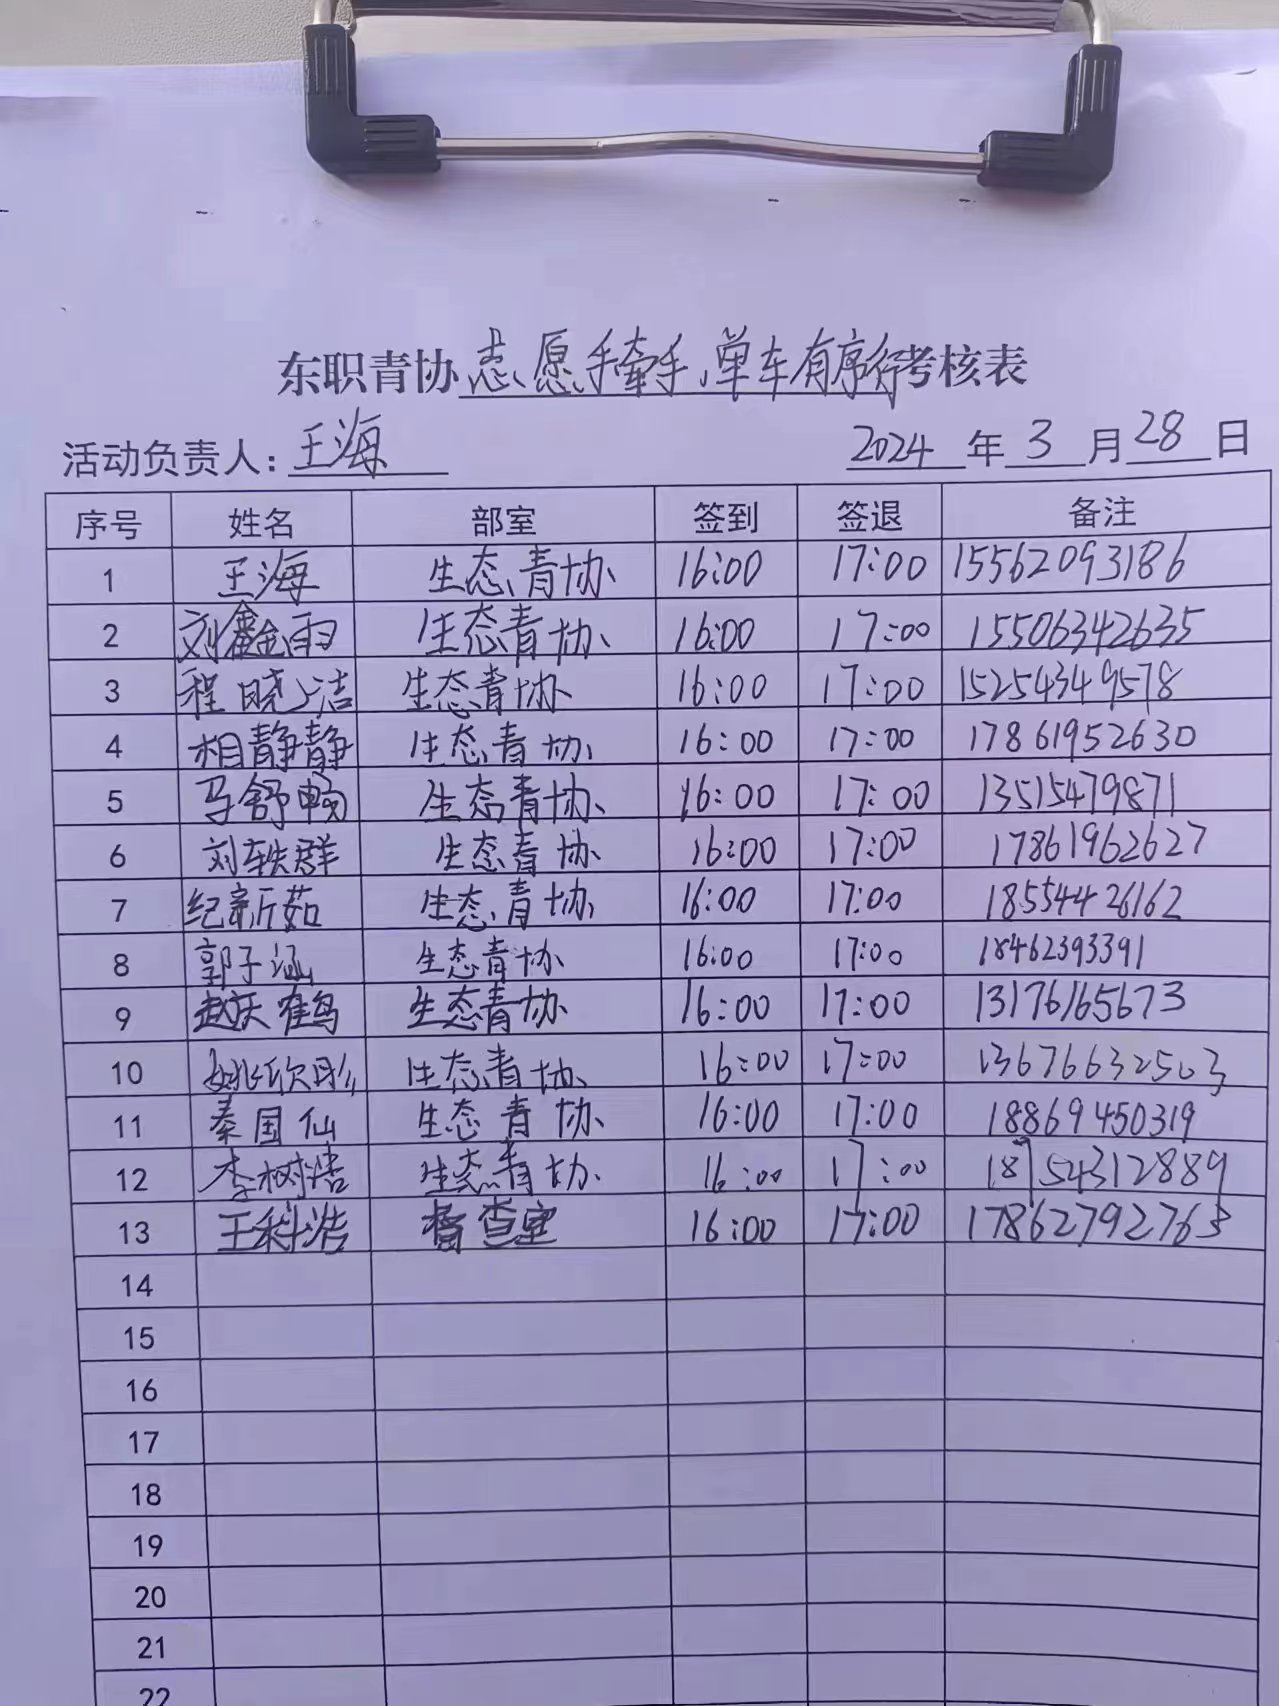 东职青协志愿手牵手,单车有序行考核表
活动负责人:王海 2024年3月28日
序号 姓名 部室 签到 签退 备注
1 王海 生态青协 16:00 17:00 15562093186
2 刘鑫雨 生态青协 16:00 17:00 15506342635
3 程晓洁 生态青协 16:00 17:00 15254349578
4 相静静 生态青协 16:00 17:00 17861952630
5 马舒畅 生态青协 16:00 17:00 13515479871
6 刘轶群 生态青协 16:00 17:00 17861962627
7 纪新茹 生态青协 16:00 17:00 18554426162
8 郭子涵 生态青协 16:00 17:00 18462393391
9 生态青协 16:00 17:00 13176165673
10 姚欣彤 生态青协 16:00 17:00 13676632503
11 秦国仙 生态青协 16:00 17:00 18869450319
12 李树浩 生态青协 16:00 17:00 18754312889
13 王科浩 督查室 16:00 17:00 17862792763
14
15
16
17
18
19
20
21
22